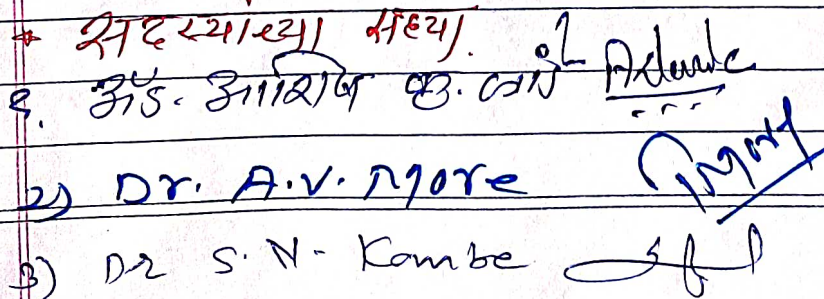 * सदस्यांच्या सह्या.
१. अॅड. आशिष
2) Dr. A.V. More
3) Dr S. N. Kambe